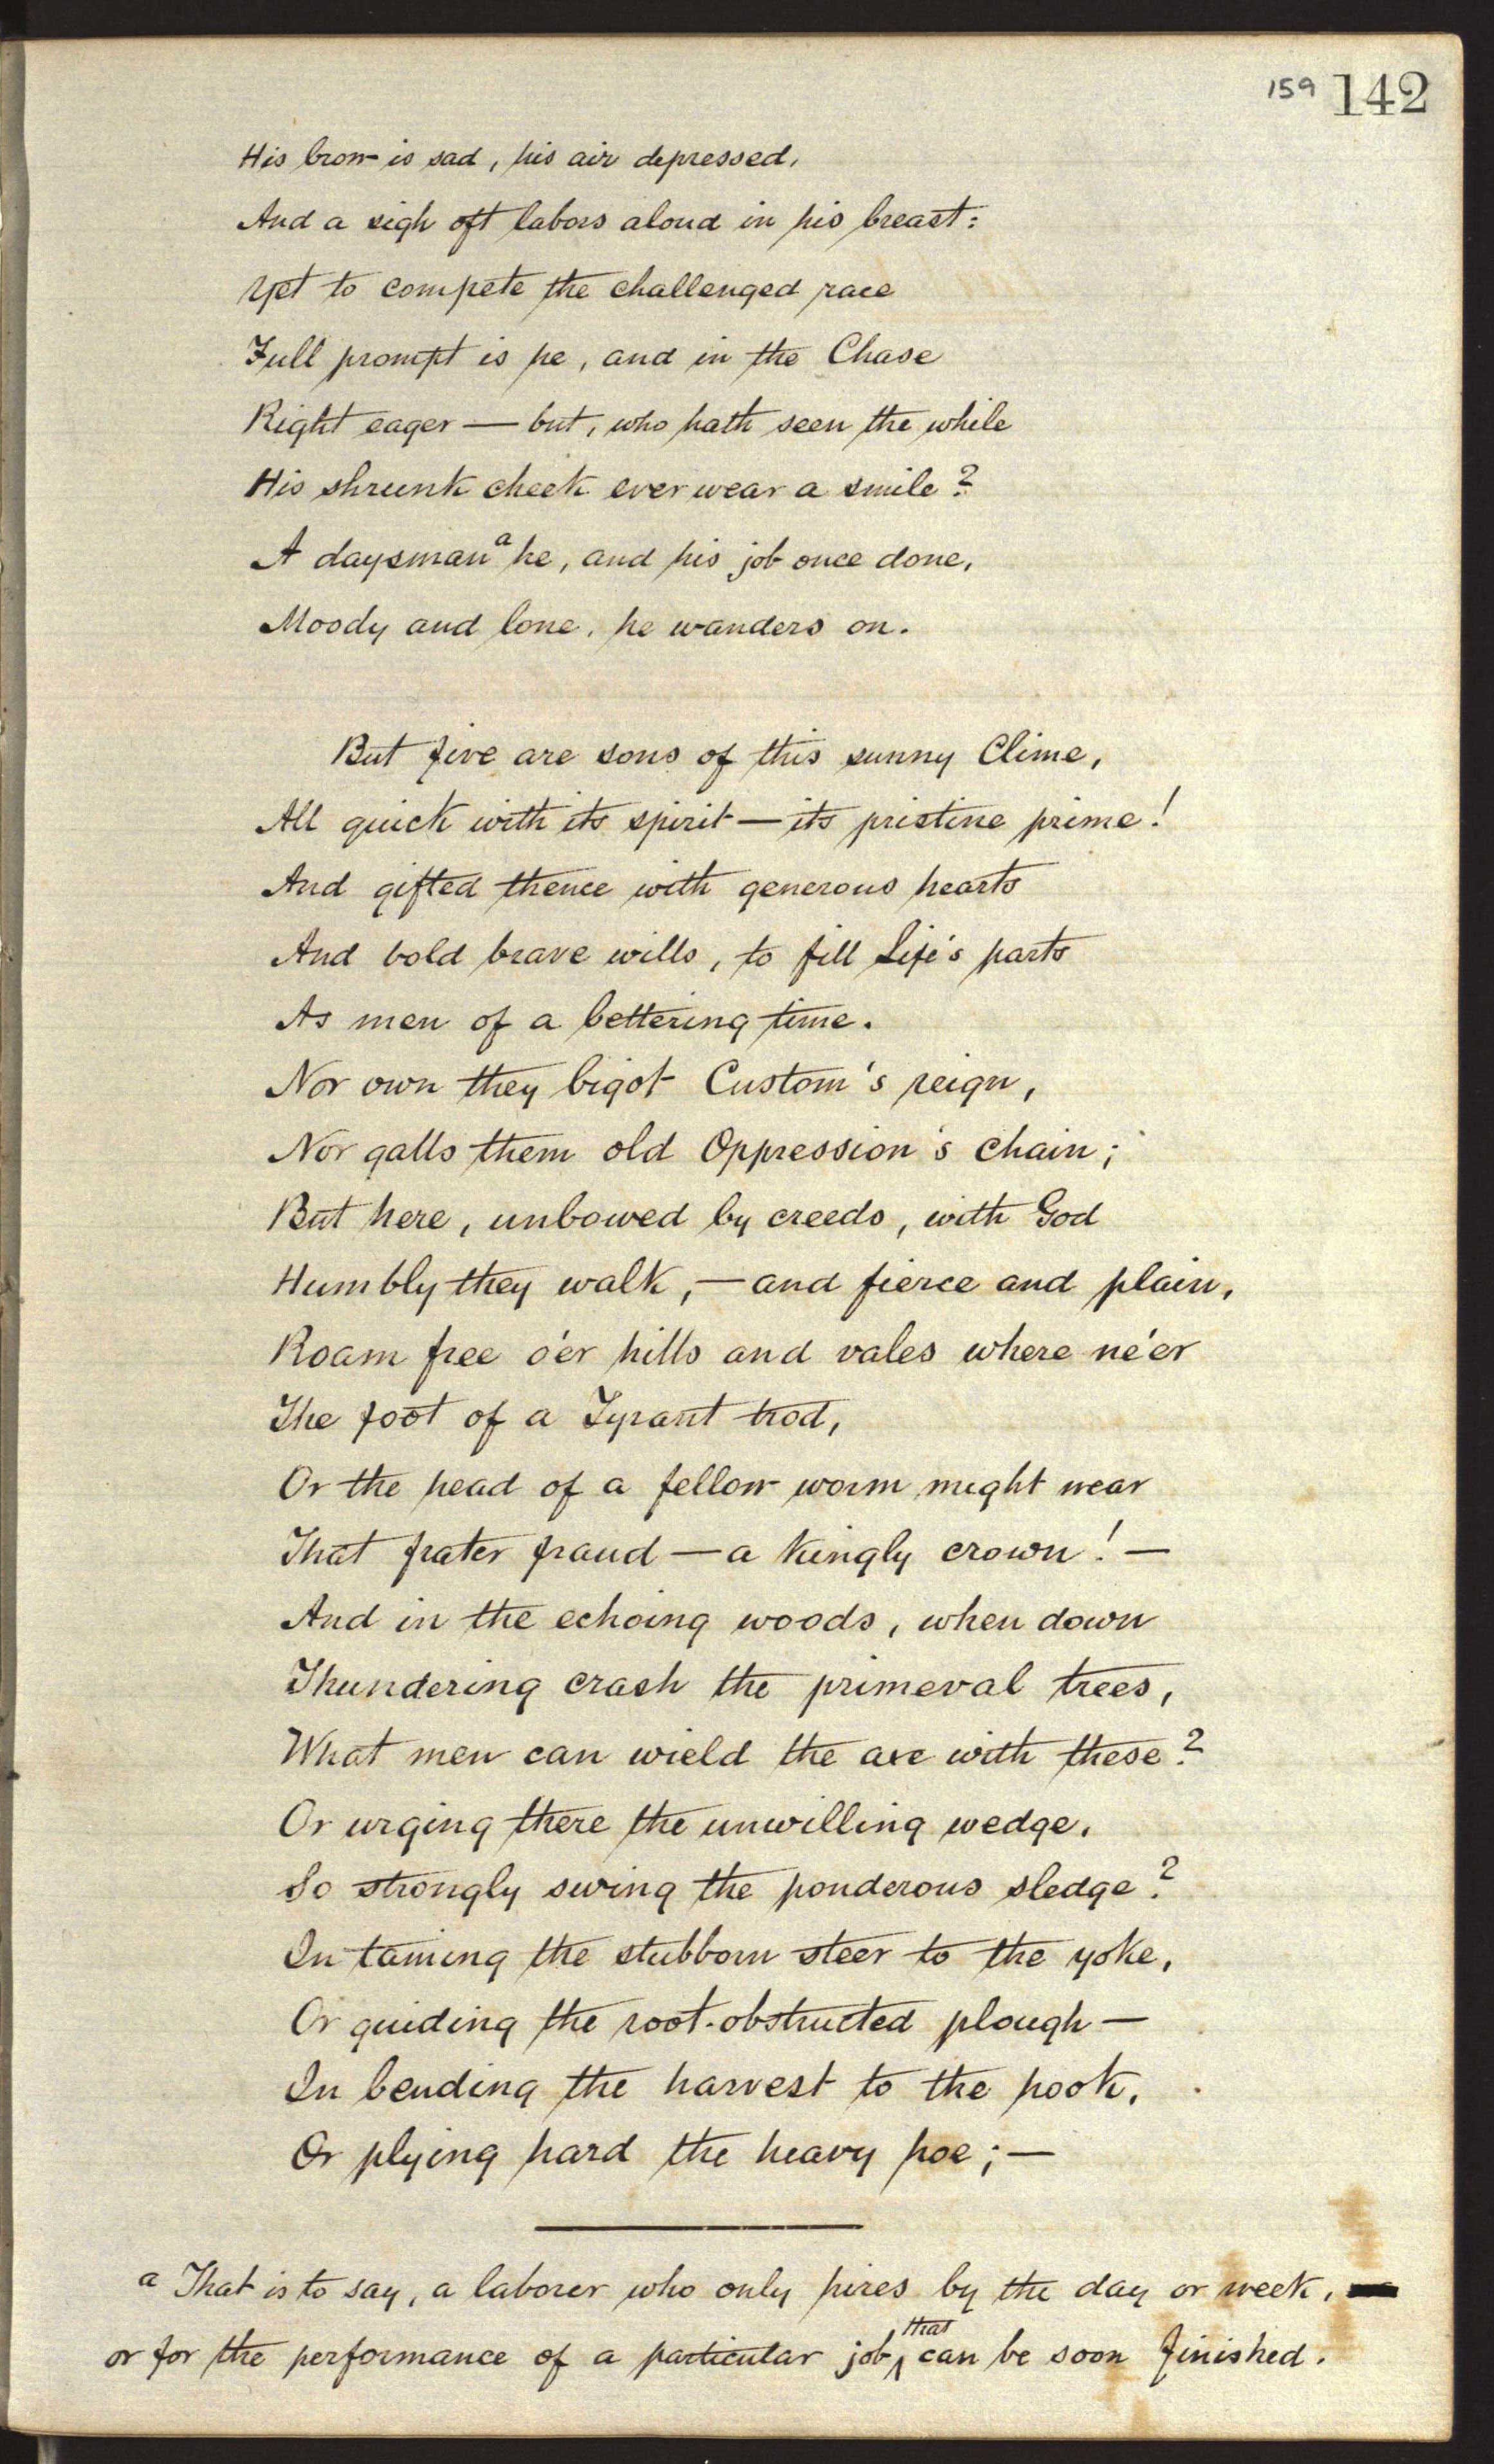 159 142
His brow is sad, his air depressed,
And a sigh oft labors aloud in his breast:
Yet to compete the challenged race
Full prompt is he, and in the Chase
Right eager — but, who hath seen the while
His shrunk cheek ever wear a smile?
A daysman a he, and his job once done,
Moody and lone, he wanders on.
But five are sons of this sunny Clime,
All quick with its spirit — its pristine prime!
And gifted thence with generous hearts
And bold brave wills, to fill Life's parts
As men of a bettering time.
Nor own they bigot Custom's reign,
Nor galls them old Oppression's chain;
But here, unbowed by creeds, with God
Humbly they walk, — and fierce and plain,
Roam free o'er hills and vales where ne'er
The foot of a Tyrant trod,
Or the head of a fellow worm might wear
That frater fraud — a kingly crown! —
And in the echoing woods, when down
Thundering crash the primeval trees,
What men can wield the axe with these?
Or urging there the unwilling wedge,
So strongly swing the ponderous sledge?
In taming the stubborn steer to the yoke,
Or guiding the root-obstructed plough —
In bending the harvest to the hook,
Or plying hard the heavy hoe; —
a That is to say, a laborer who only hires by the day or week,
or for the performance of a particular job that can be soon finished.